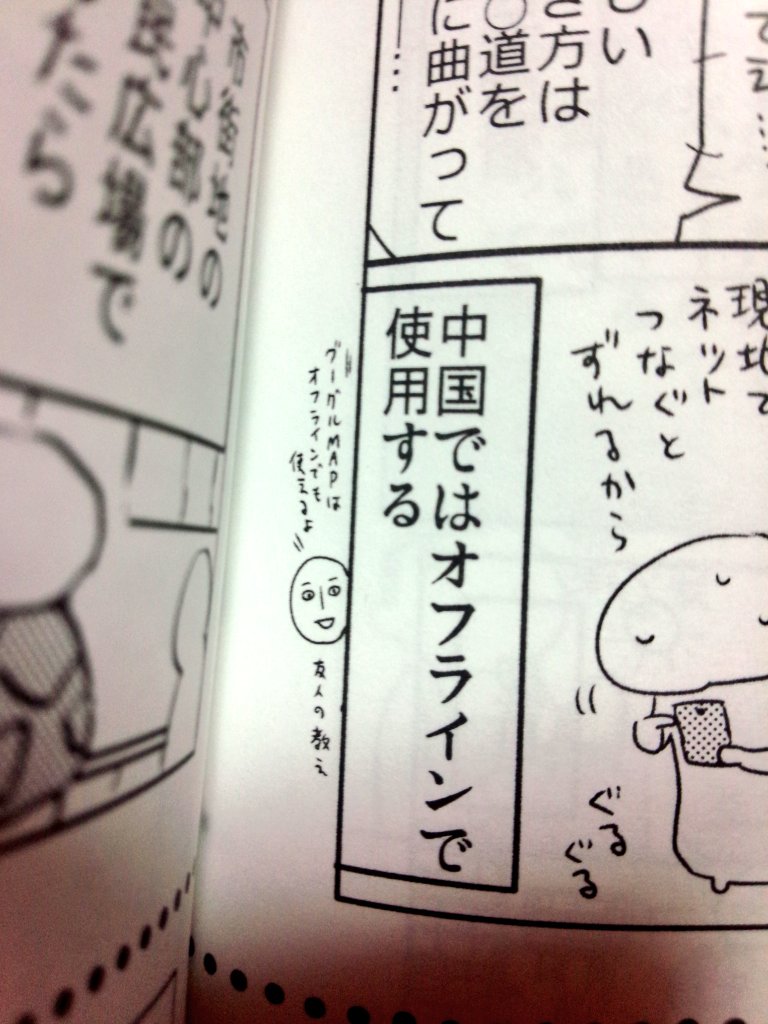 き方は
○道を
に曲がって
……
現地で
ネット
つなぐと
ずれるから
ぐるぐる
中国ではオフラインで
使用する
グーグルMAPは
オフラインでも
使えるよ
友人の教え
中心部の
広場で
たら